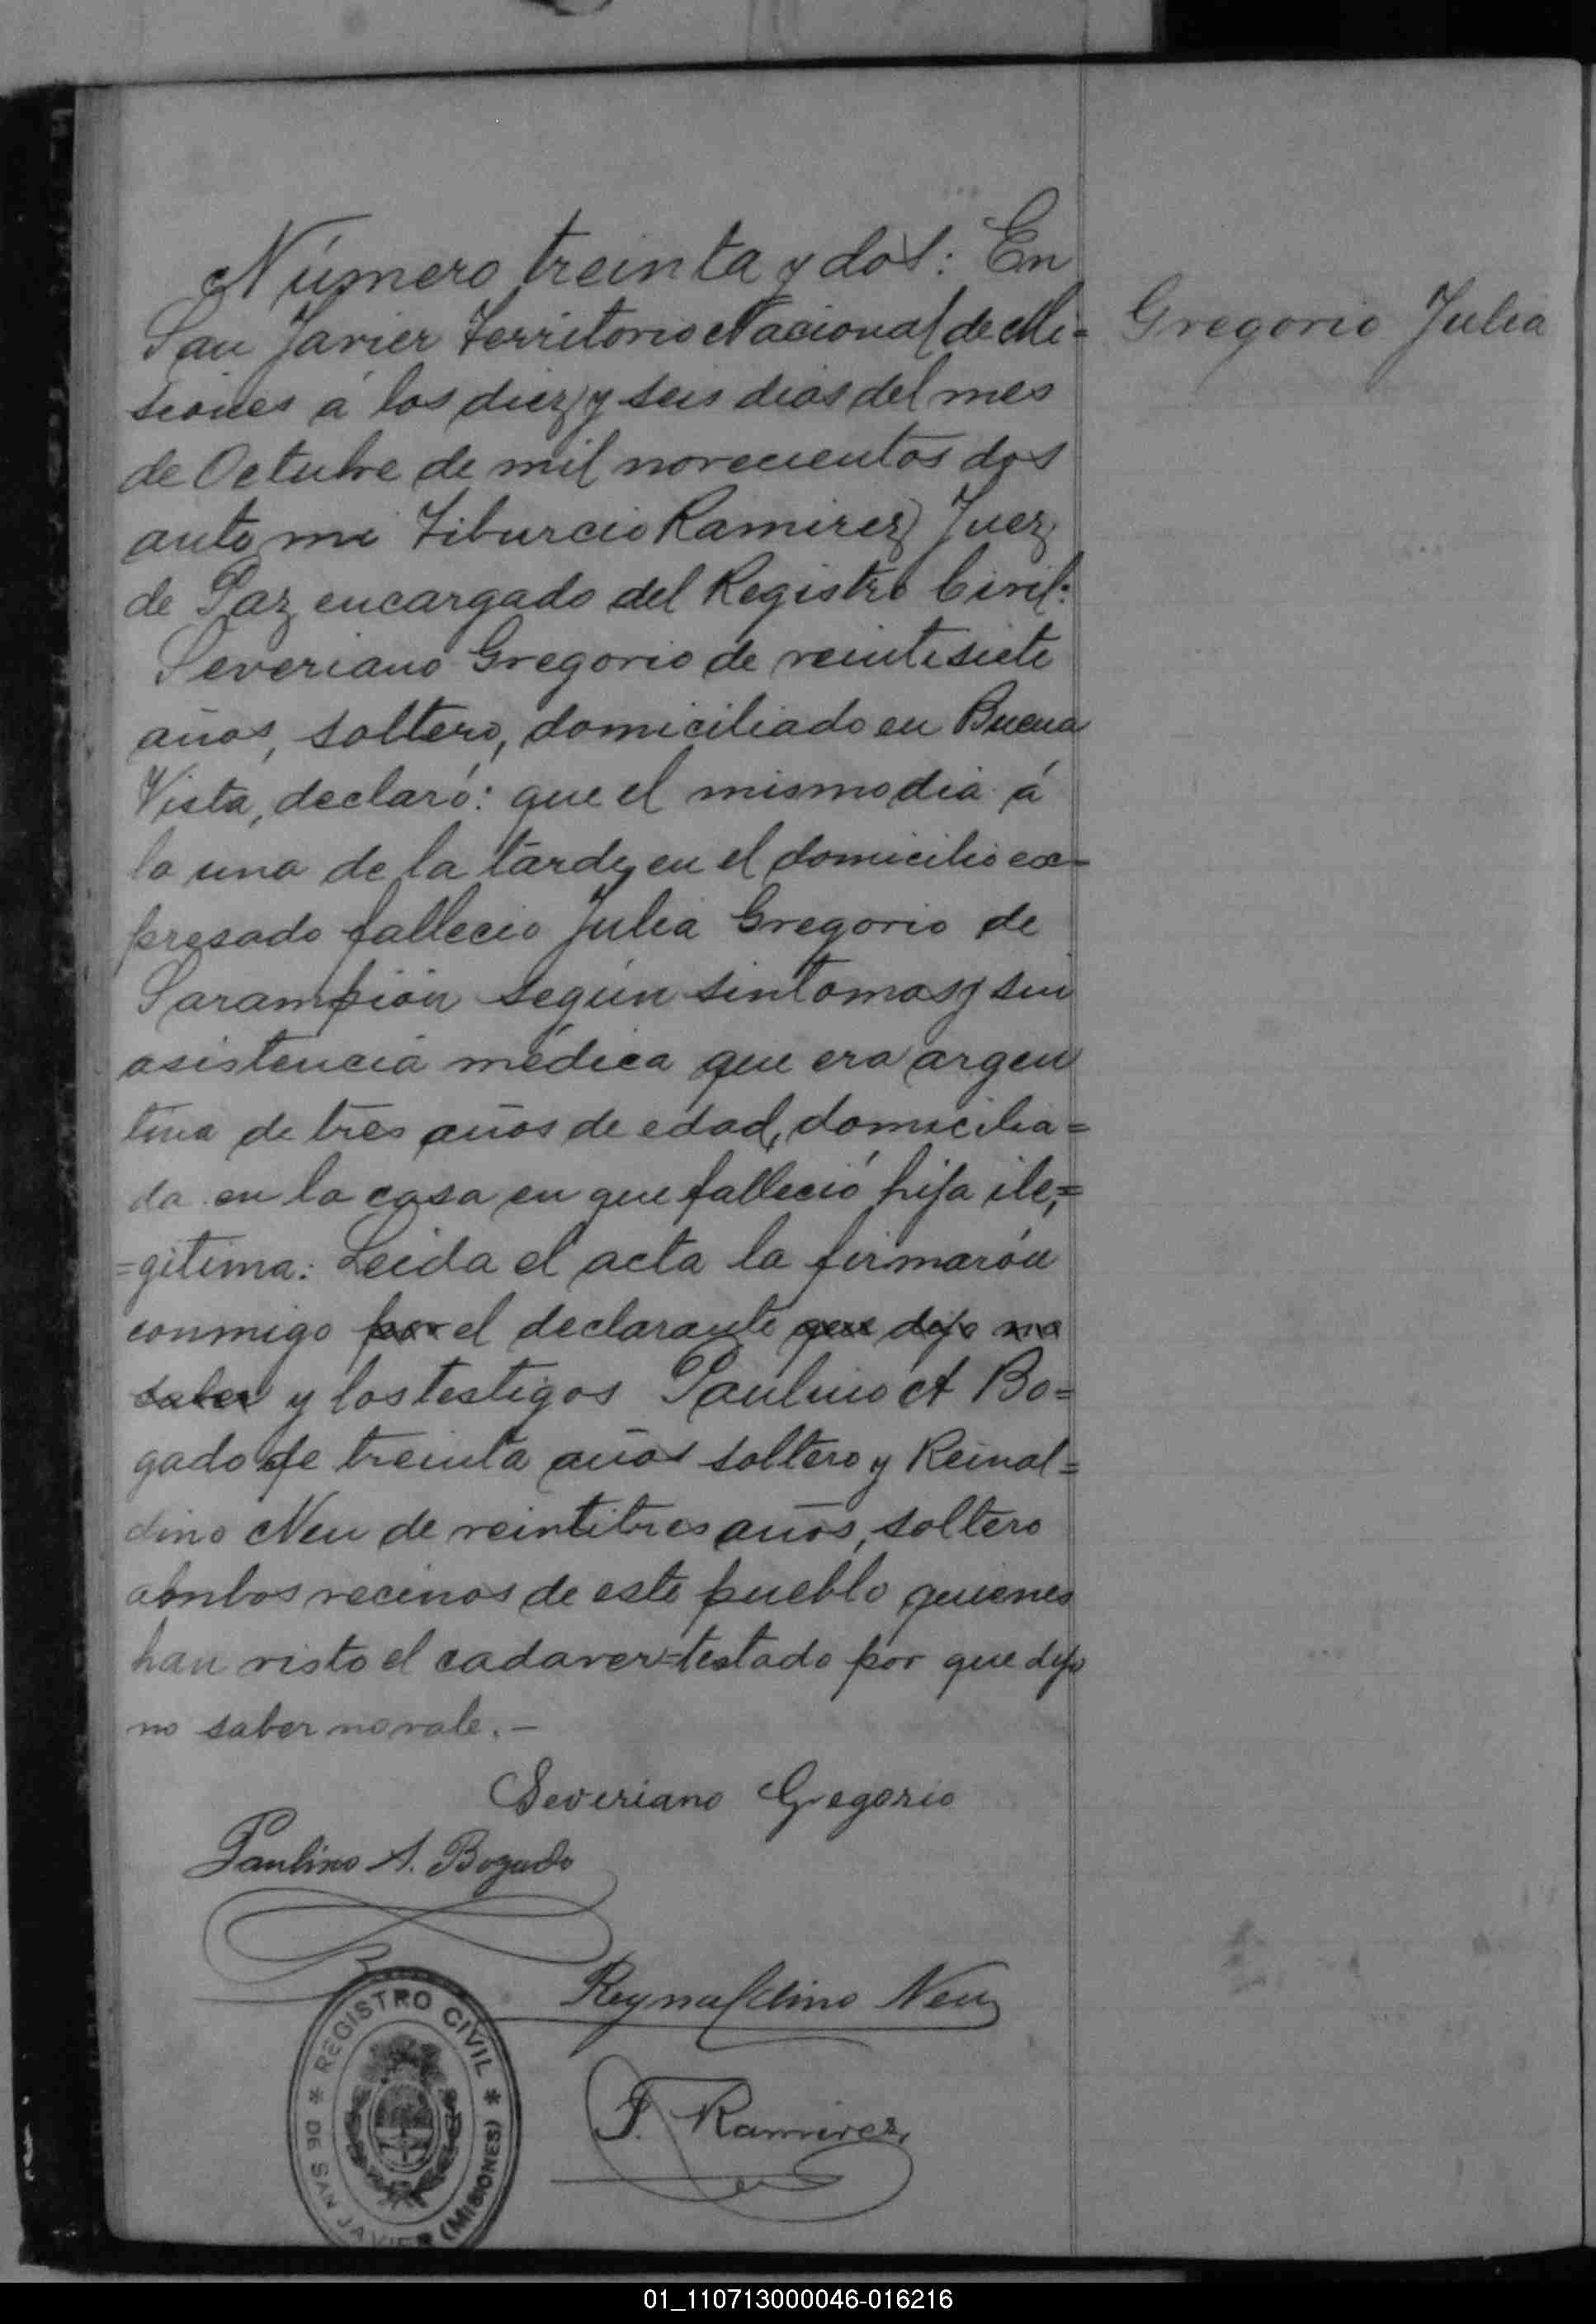 Número treinta y dos: En
San Javier Territorio Nacional de Mi=
Gregorio Julia
siones á los diez y seis dias del mes
de Octubre de mil novecientos dos
ante mi Tiburcio Ramirez Juez
de Paz encargado del Registro Civil:
Severiano Gregorio de veintisiete
años, soltero, domiciliado en Buena
Vista, declaró: que el mismo dia á
la una de la tarde, en el domicilio ex=
presado fallecio Julia Gregorio de
Sarampión según sintomas y sin
asistencia médica que era argen
tina de tres años de edad, domicilia=
da en la casa en que falleció hija ile=
=gitima: Leida el acta la firmarón
conmigo por el declarante que dijo no
saber y los testigos Paulino A Bo=
gado de treinta años soltero y Reinal=
dino Neu de veintitres años, soltero
ambos vecinos de este pueblo quienes
han visto el cadaver=testado por que dijo
no saber no vale.-
Severiano Gregorio
Paulino A. Bogado
Reynaldino Neu
T. Ramirez
REGISTRO CIVIL
* DE SAN JAVIER (MISIONES) *
01_110713000046-016216